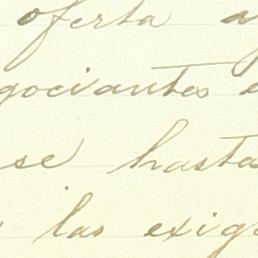 oferta a
gociantes e
se hasta
las exig